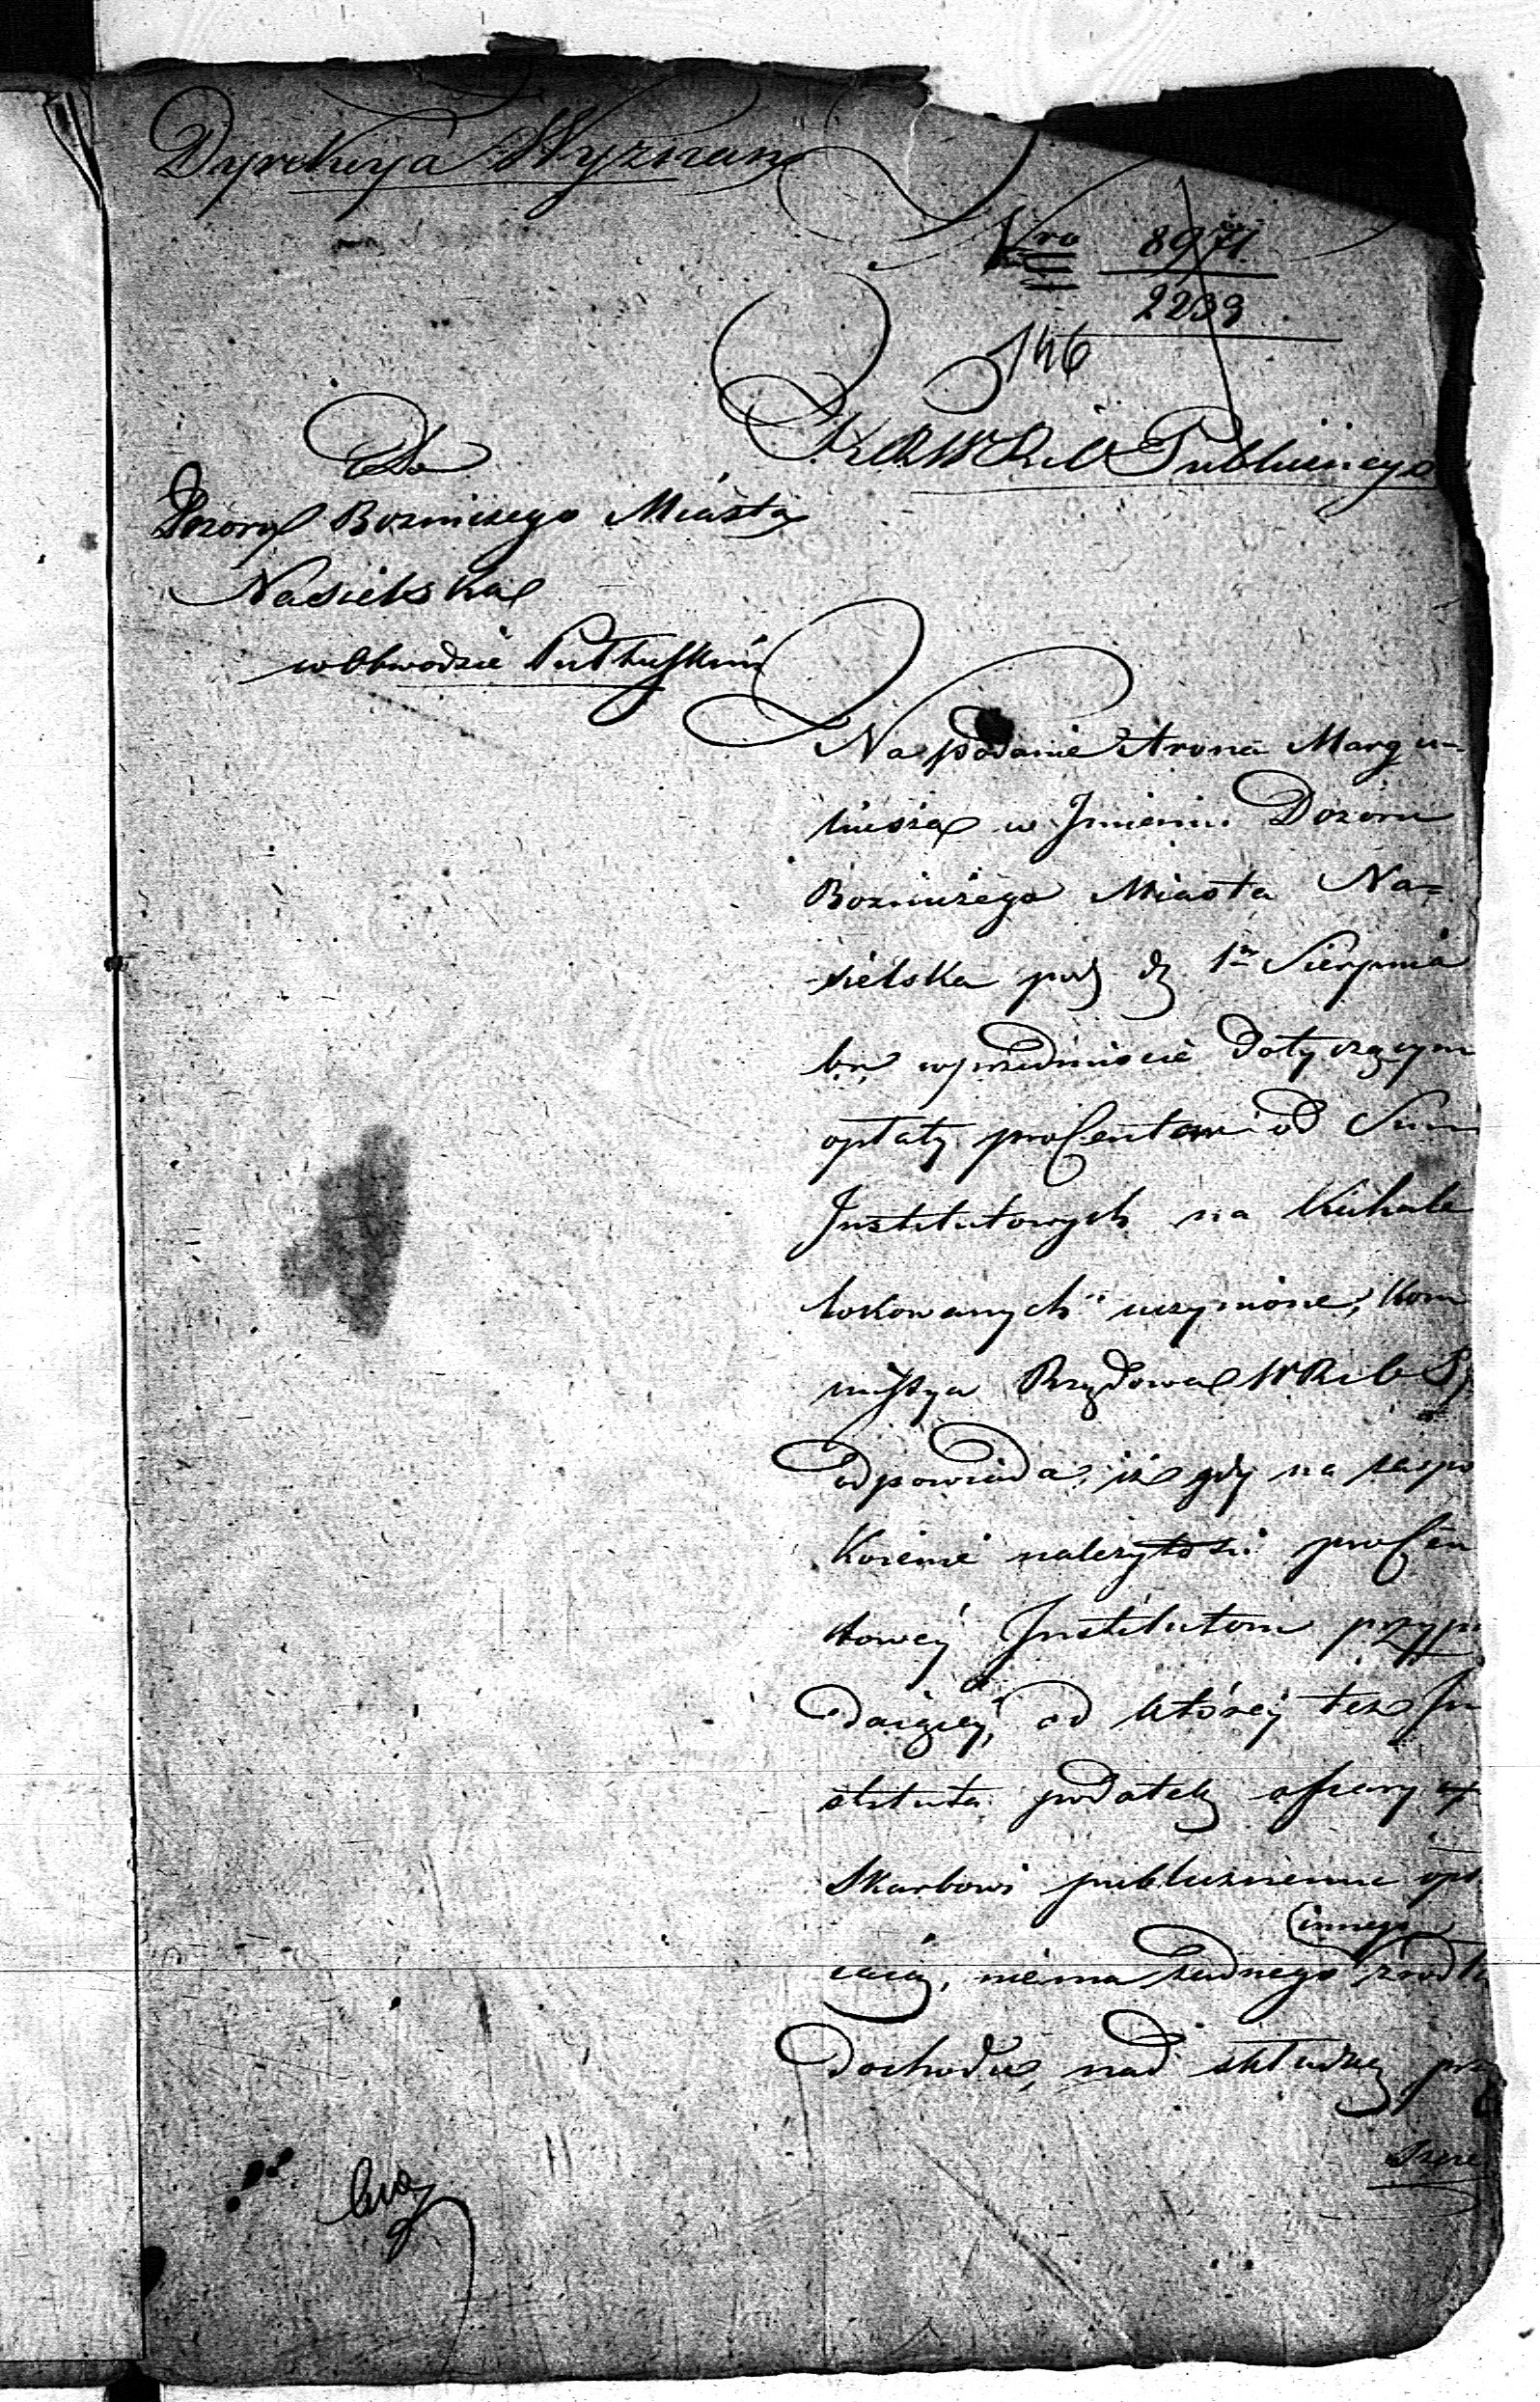 Dyrekcya Wyznan
Nro 8971
2239
146
K R W R i O Publicznego
Do
Dozoru Bozniczego Miasta
Nasielska
w Obwodzie Pułtuskim
Na podanie Arona Margu-
liesza w Jmieniu Dozoru
Bozniczego Miasta Na=
sielska pod d 1m Sierpnia
br w przedmiocie dotyczącym
opłaty procentow od Summ
Jnstitutowych na Kahale
lokowanych uczynione, Kom
missya Rządowa W R i O P
odpowiada, iż gdy na zaspo
koienie należytości procen
towey Jnstitutom przypa
daiącey, od którey też Jn
stituta podatek ofiary
Skarbowi publicznemu opł
caią, niéma żadnego innego źrodła
dochodu, nad składkę